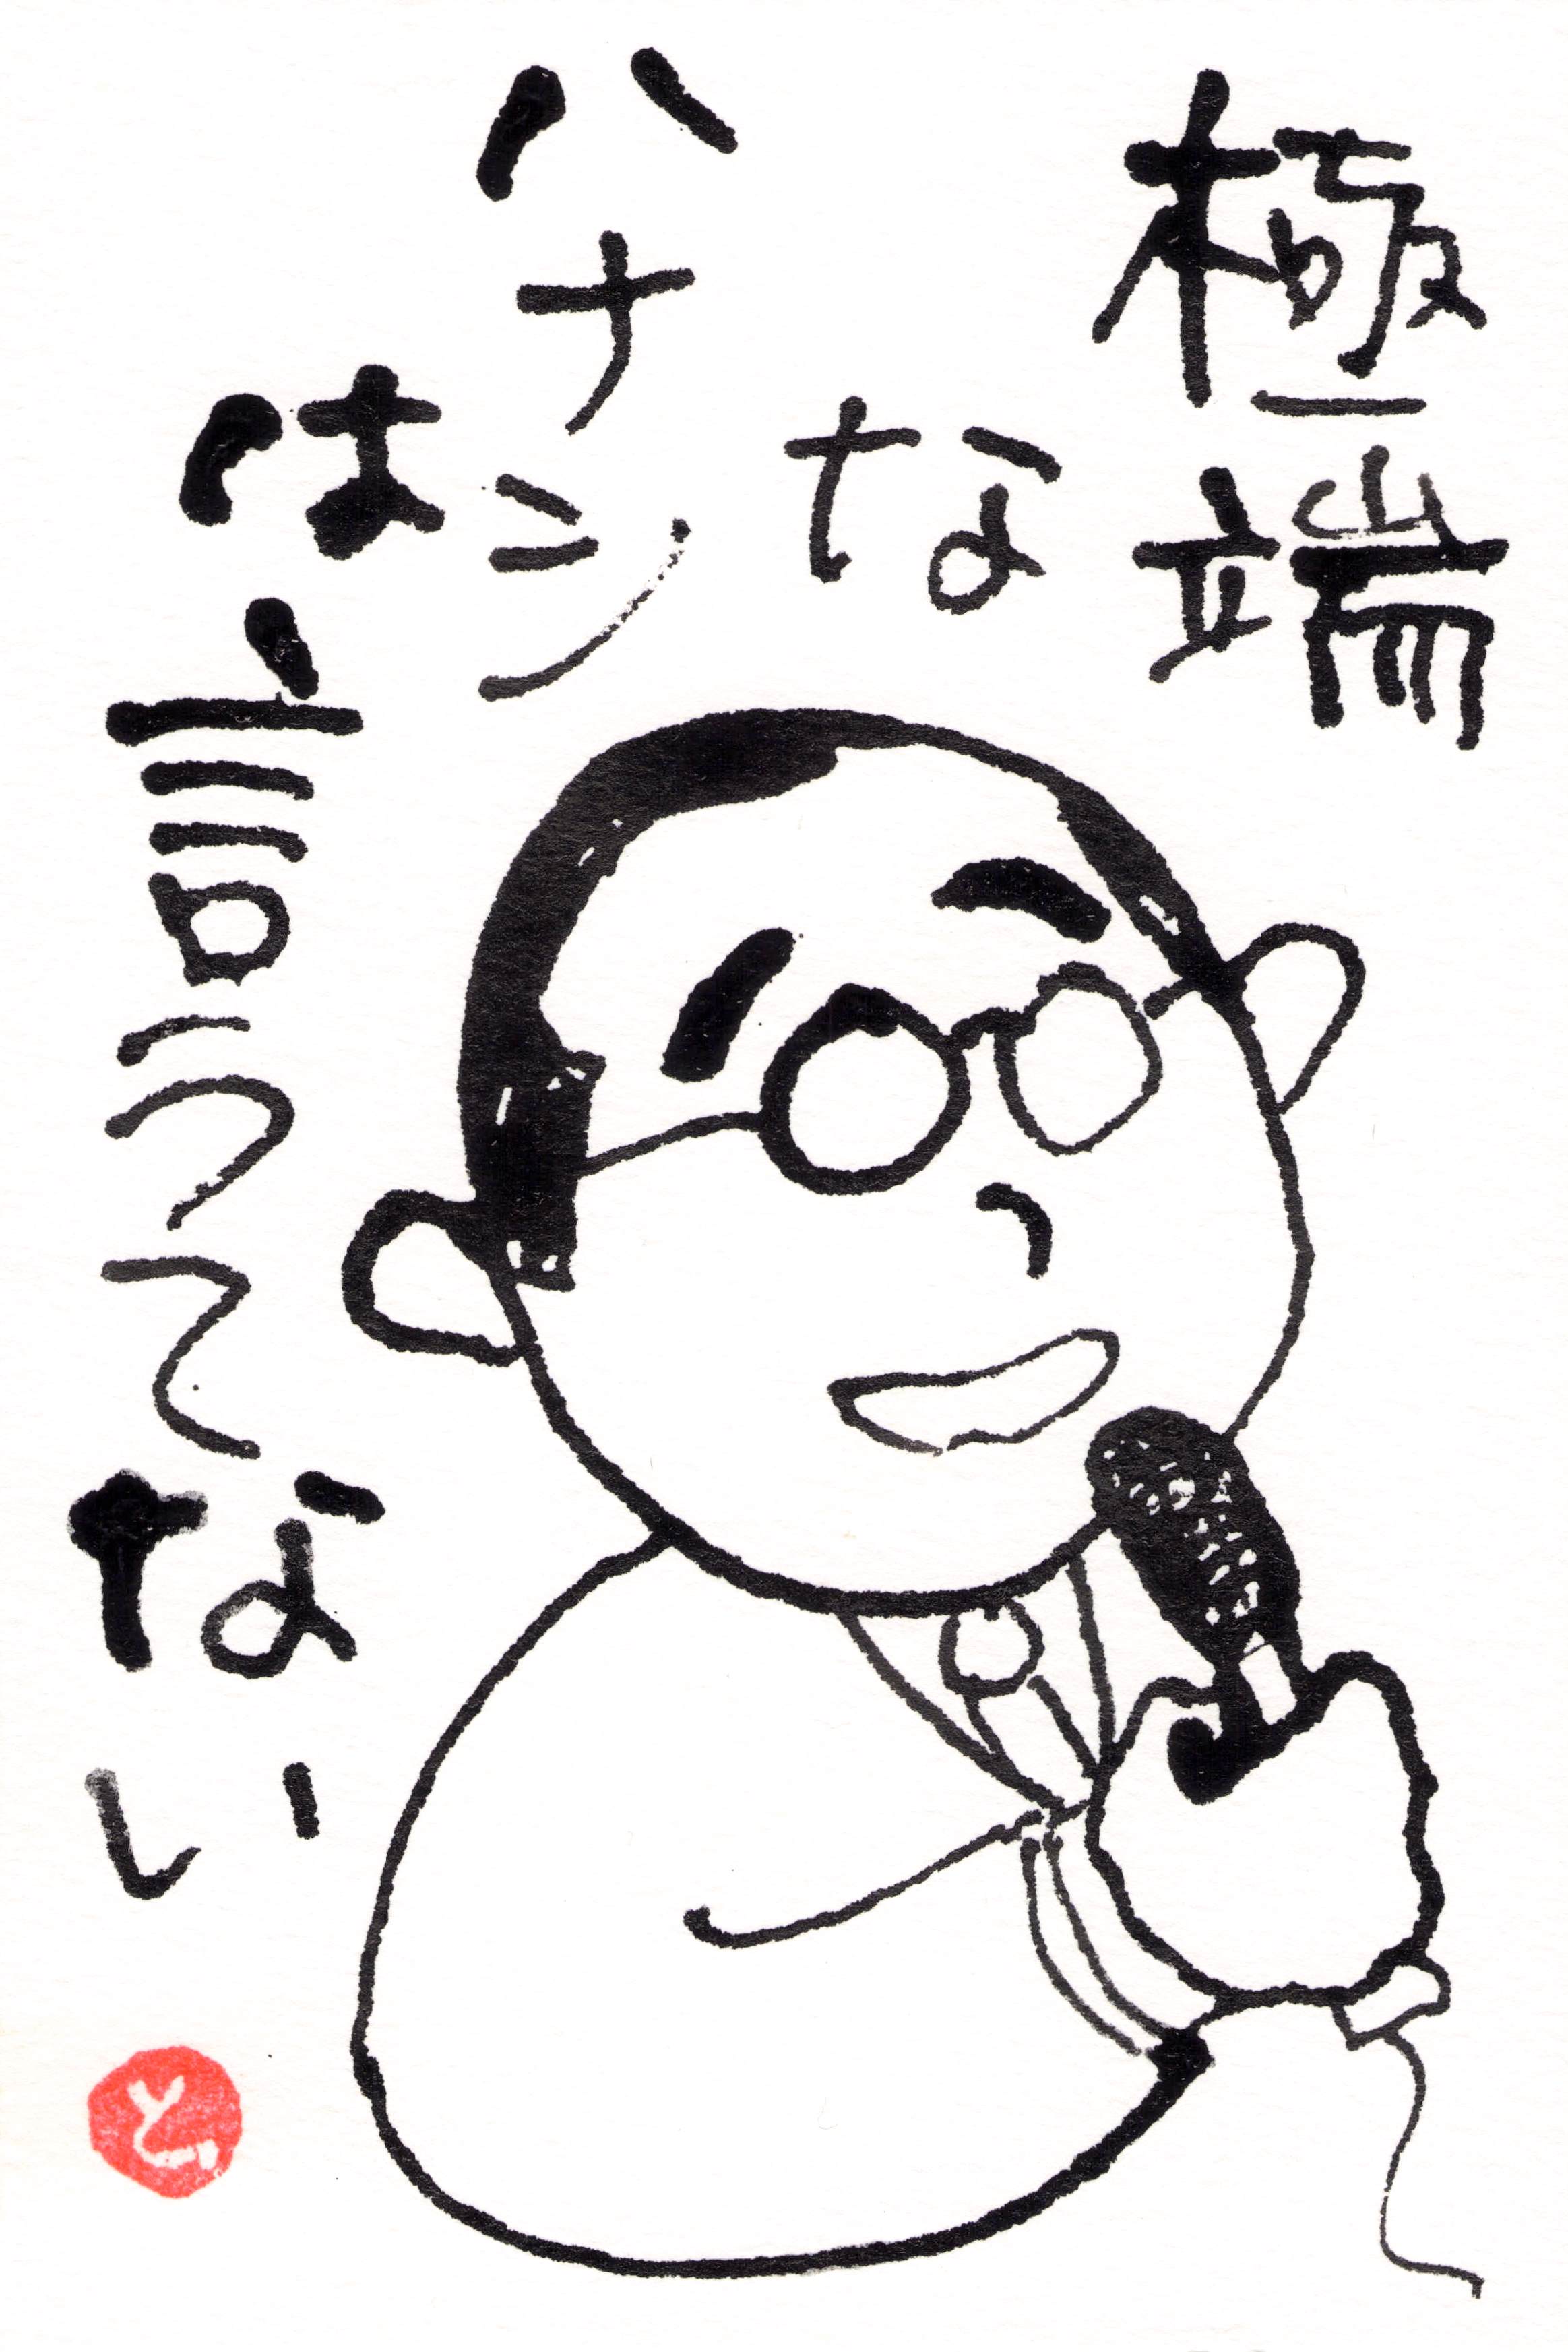 極端
な
ハナシ
は言ってない
と